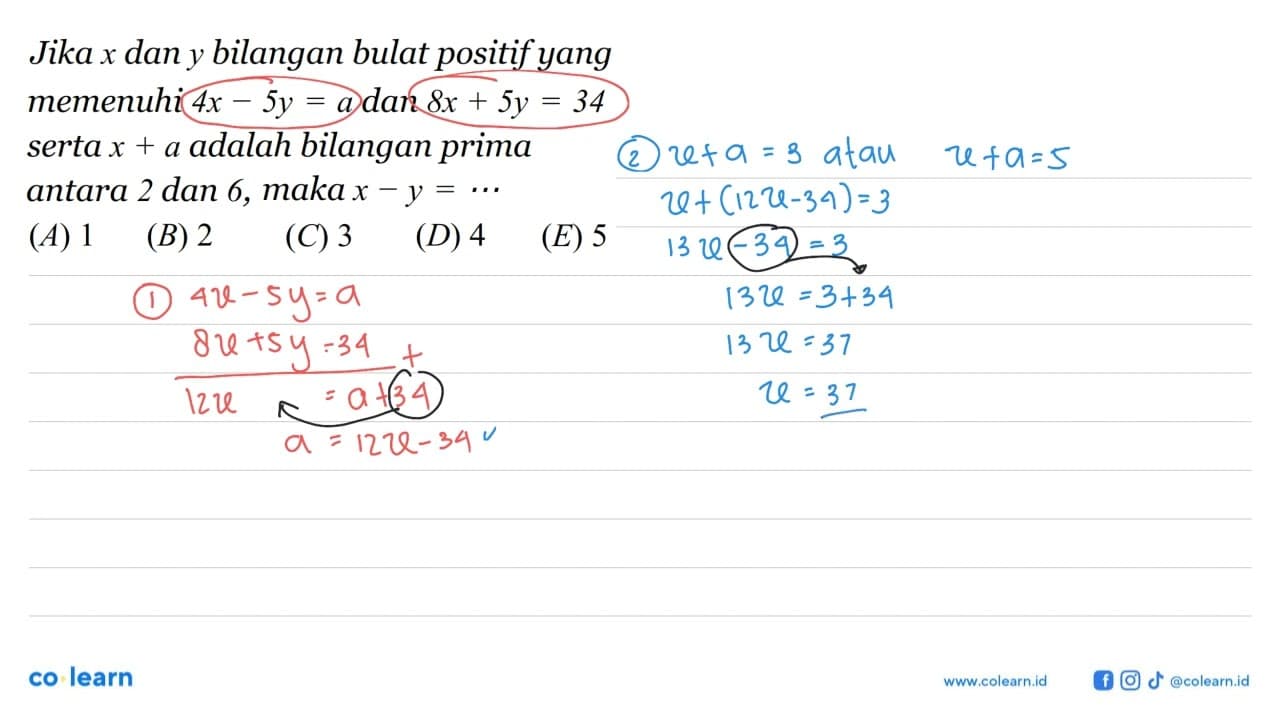 Jika x dan y bilangan bulat positif yang
memenuhi 4x − 5y = a dan 8x + 5y = 34
serta x + a adalah bilangan prima
antara 2 dan 6, maka x − y = ⋯
(A) 1 (B) 2 (C) 3 (D) 4 (E) 5
① 4x - 5y = a
8x + 5y = 34 +
12x = a + 34
a = 12x - 34 ✓
② x + a = 3 atau x + a = 5
x + (12x - 34) = 3
13x - 34 = 3
13x = 3 + 34
13x = 37
x = 37
co·learn
www.colearn.id @colearn.id